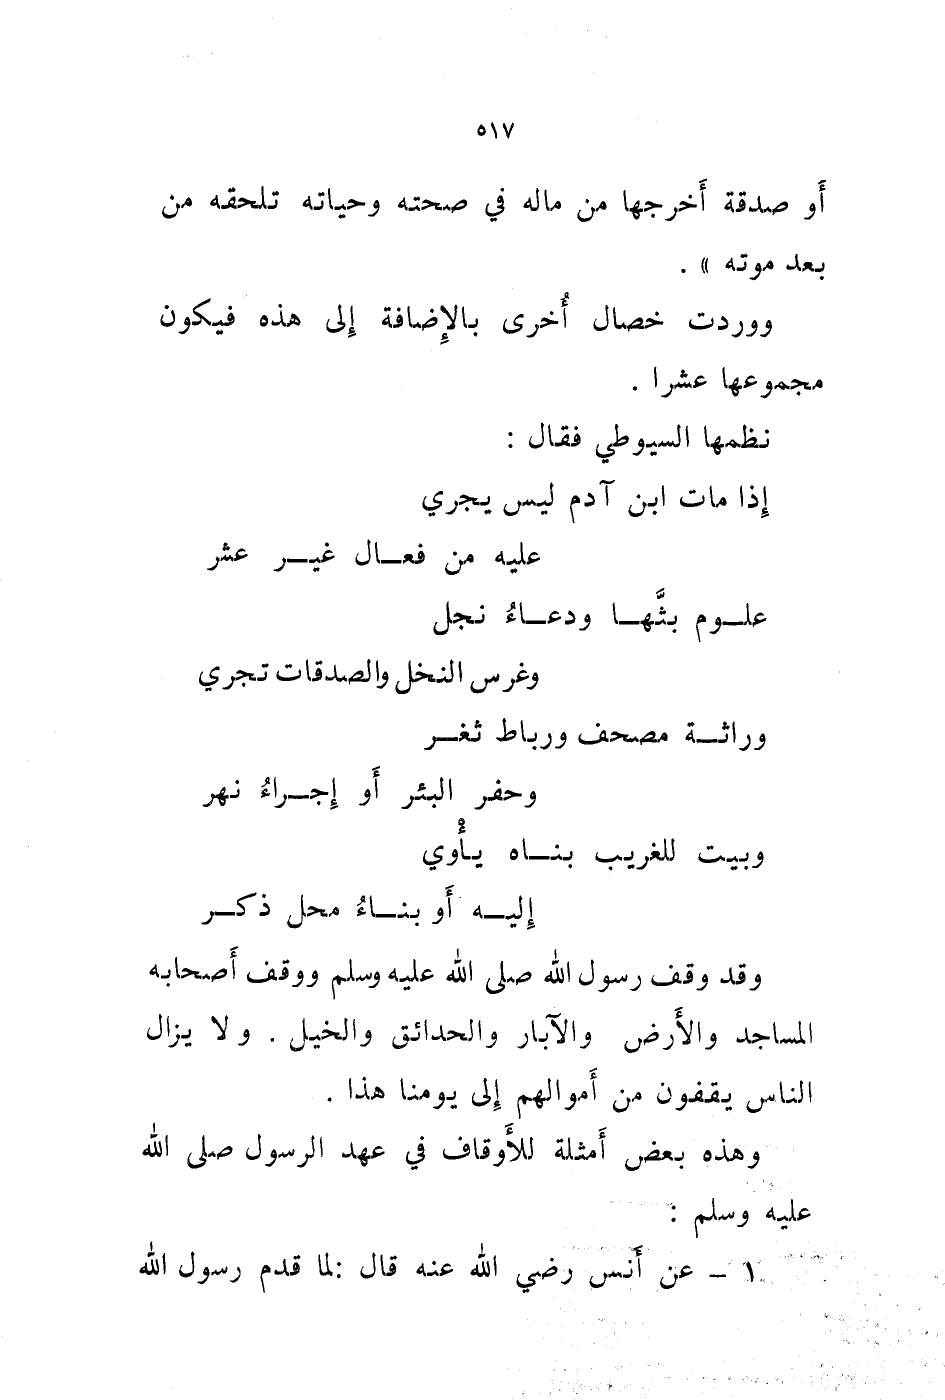 ٥١٧
أَو صدقة أَخرجها من ماله في صحته وحياته تلحقه من
بعد موته » .
ووردت خصال أُخرى بالإِضافة إِلى هذه فيكون
مجموعها عشرا .
نظمها السيوطي فقال :
إِذا مات ابن آدم ليس يجري
عليه من فعـال غيـر عشر
علـوم بثَّهـا ودعـاءُ نجل
وغرس النخل والصدقات تجري
وراثـة مصحف ورباط ثغـر
وحفر البئر أَو إِجـراءُ نهر
وبيت للغريب بنـاه يأْوي
إِليـه أَو بنـاءُ محل ذكـر
وقد وقف رسول الله صلى الله عليه وسلم ووقف أَصحابه
المساجد والأَرض والآبار والحدائق والخيل . ولا يزال
الناس يقفون من أَموالهم إِلى يومنا هذا .
وهذه بعض أَمثلة للأَوقاف في عهد الرسول صلى الله
عليه وسلم :
١ – عن أَنس رضي الله عنه قال :لما قدم رسول الله